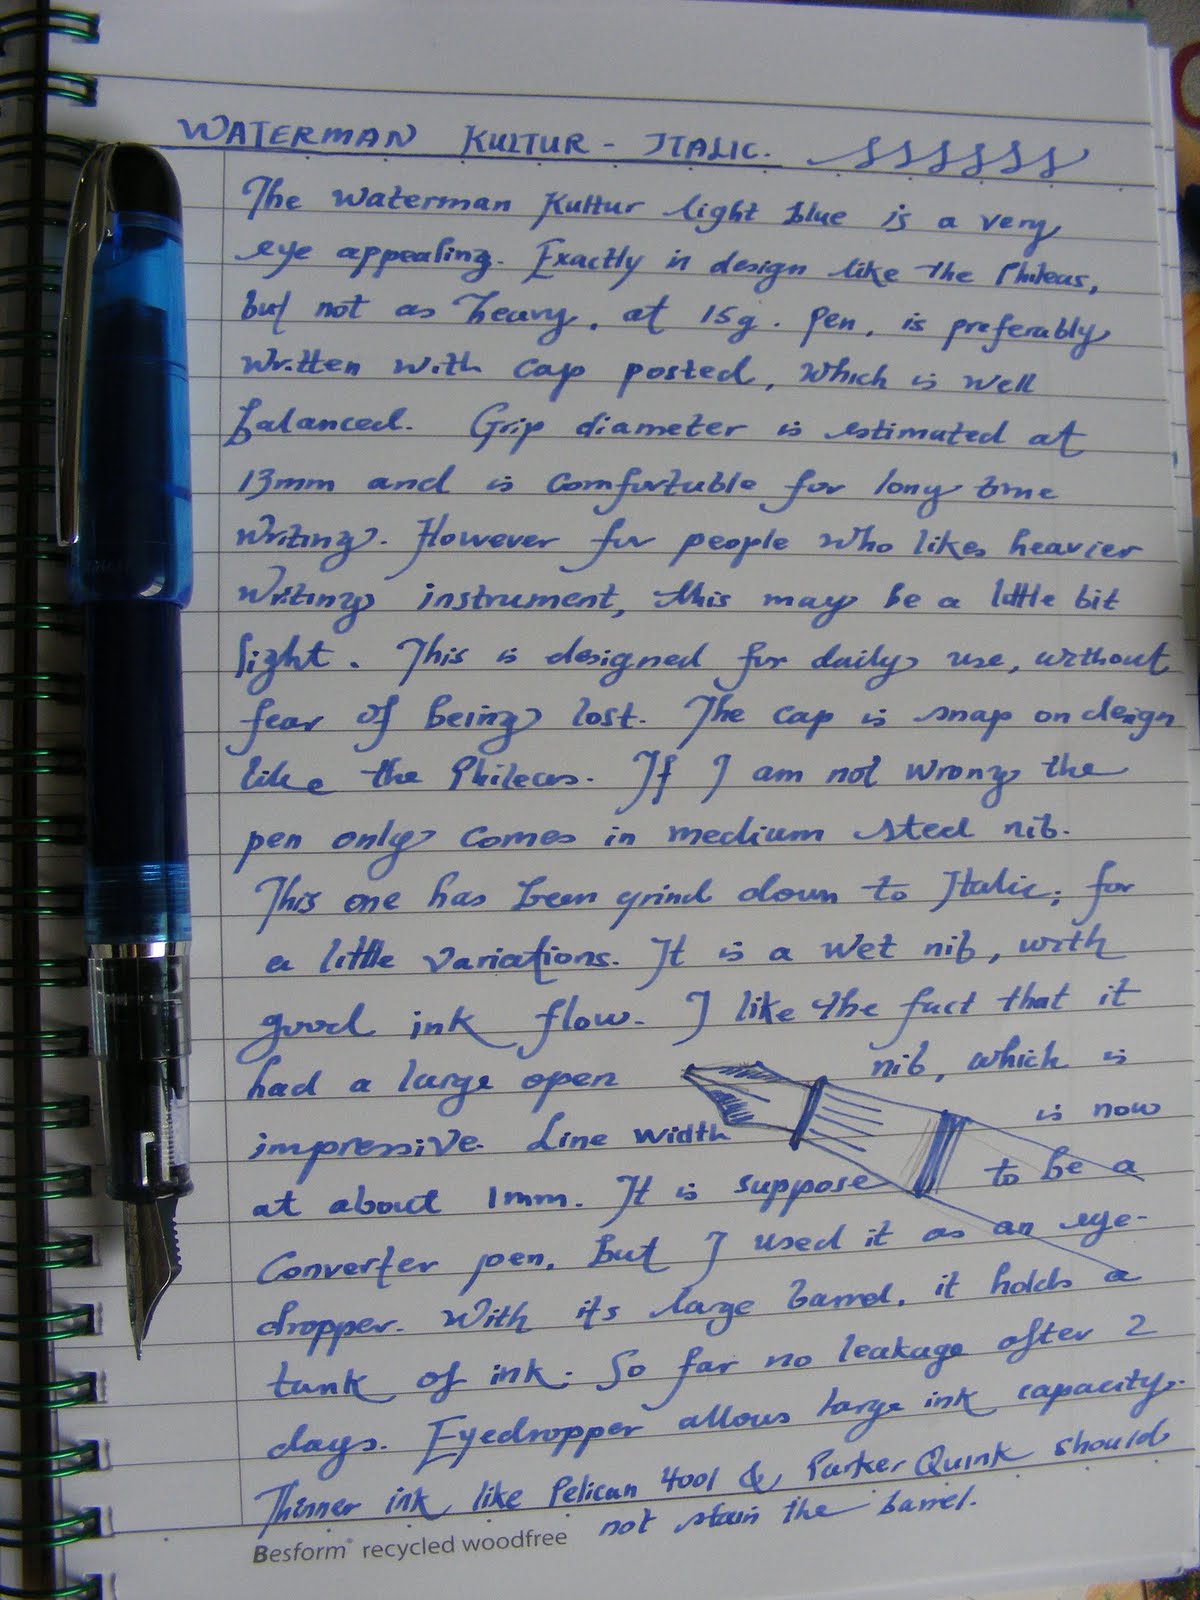 WATERMAN KULTUR - ITALIC.
The Waterman Kultur light blue is a very
eye appealing. Exactly in design like the Phileas,
but not as heavy, at 15g. Pen, is preferably
written with cap posted, which is well
balanced. Grip diameter is estimated at
13mm and is comfortable for long time
writing. However for people who likes heavier
writing instrument, this may be a little bit
light. This is designed for daily use, without
fear of being lost. The cap is snap on design
like the Phileas. If I am not wrong the
pen only comes in medium steel nib.
This one has been grind down to Italic, for
a little variations. It is a wet nib, with
good ink flow. I like the fact that it
had a large open nib, which is
impressive. Line width is now
at about 1mm. It is suppose to be a
Converter pen. But I used it as an eye-
dropper. With its large barrel, it holds a
tank of ink. So far no leakage after 2
days. Eyedropper allows large ink capacity.
Thinner ink like Pelican 4001 & Parker Quink should
not stain the barrel.
Besform® recycled woodfree